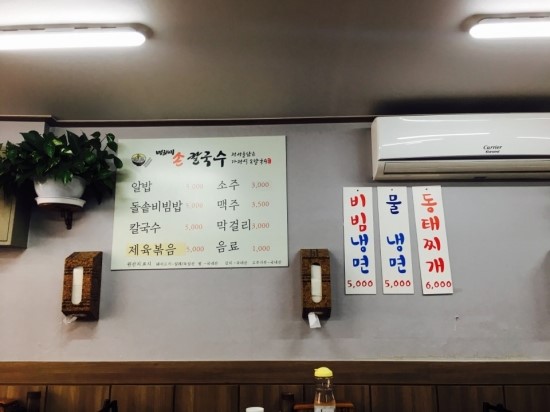 손 칼국수
알밥 5,000 소주 3,000
돌솥비빔밥 5,000 맥주 3,500
칼국수 5,000 막걸리 3,000
제육볶음 5,000 음료 1,000
비빔냉면 5,000
물냉면 5,000
동태찌개 6,000
Carrier